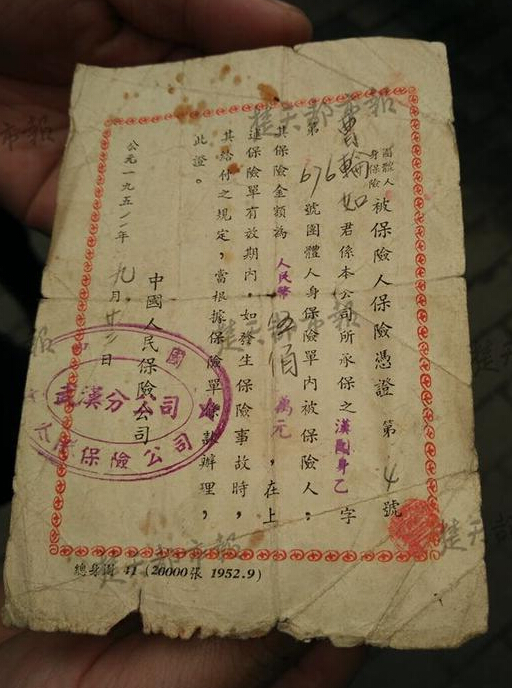 團體人身保險
被保險人保險憑證
第4號
曹輪如君係本公司所承保之漢團身乙字
第676號團體人身保險單內被保險人。
其保險金額為人民幣伍佰萬元，在上
述保險單有效期內，如發生保險事故時，
其給付之規定，當根據保險單條款辦理，
此證。
中國人民保險公司
公元一九五二年九月廿三日
武漢分公司
保險公司
總身團 11 (20000張 1952.9)
楚天都市報
楚天都市報